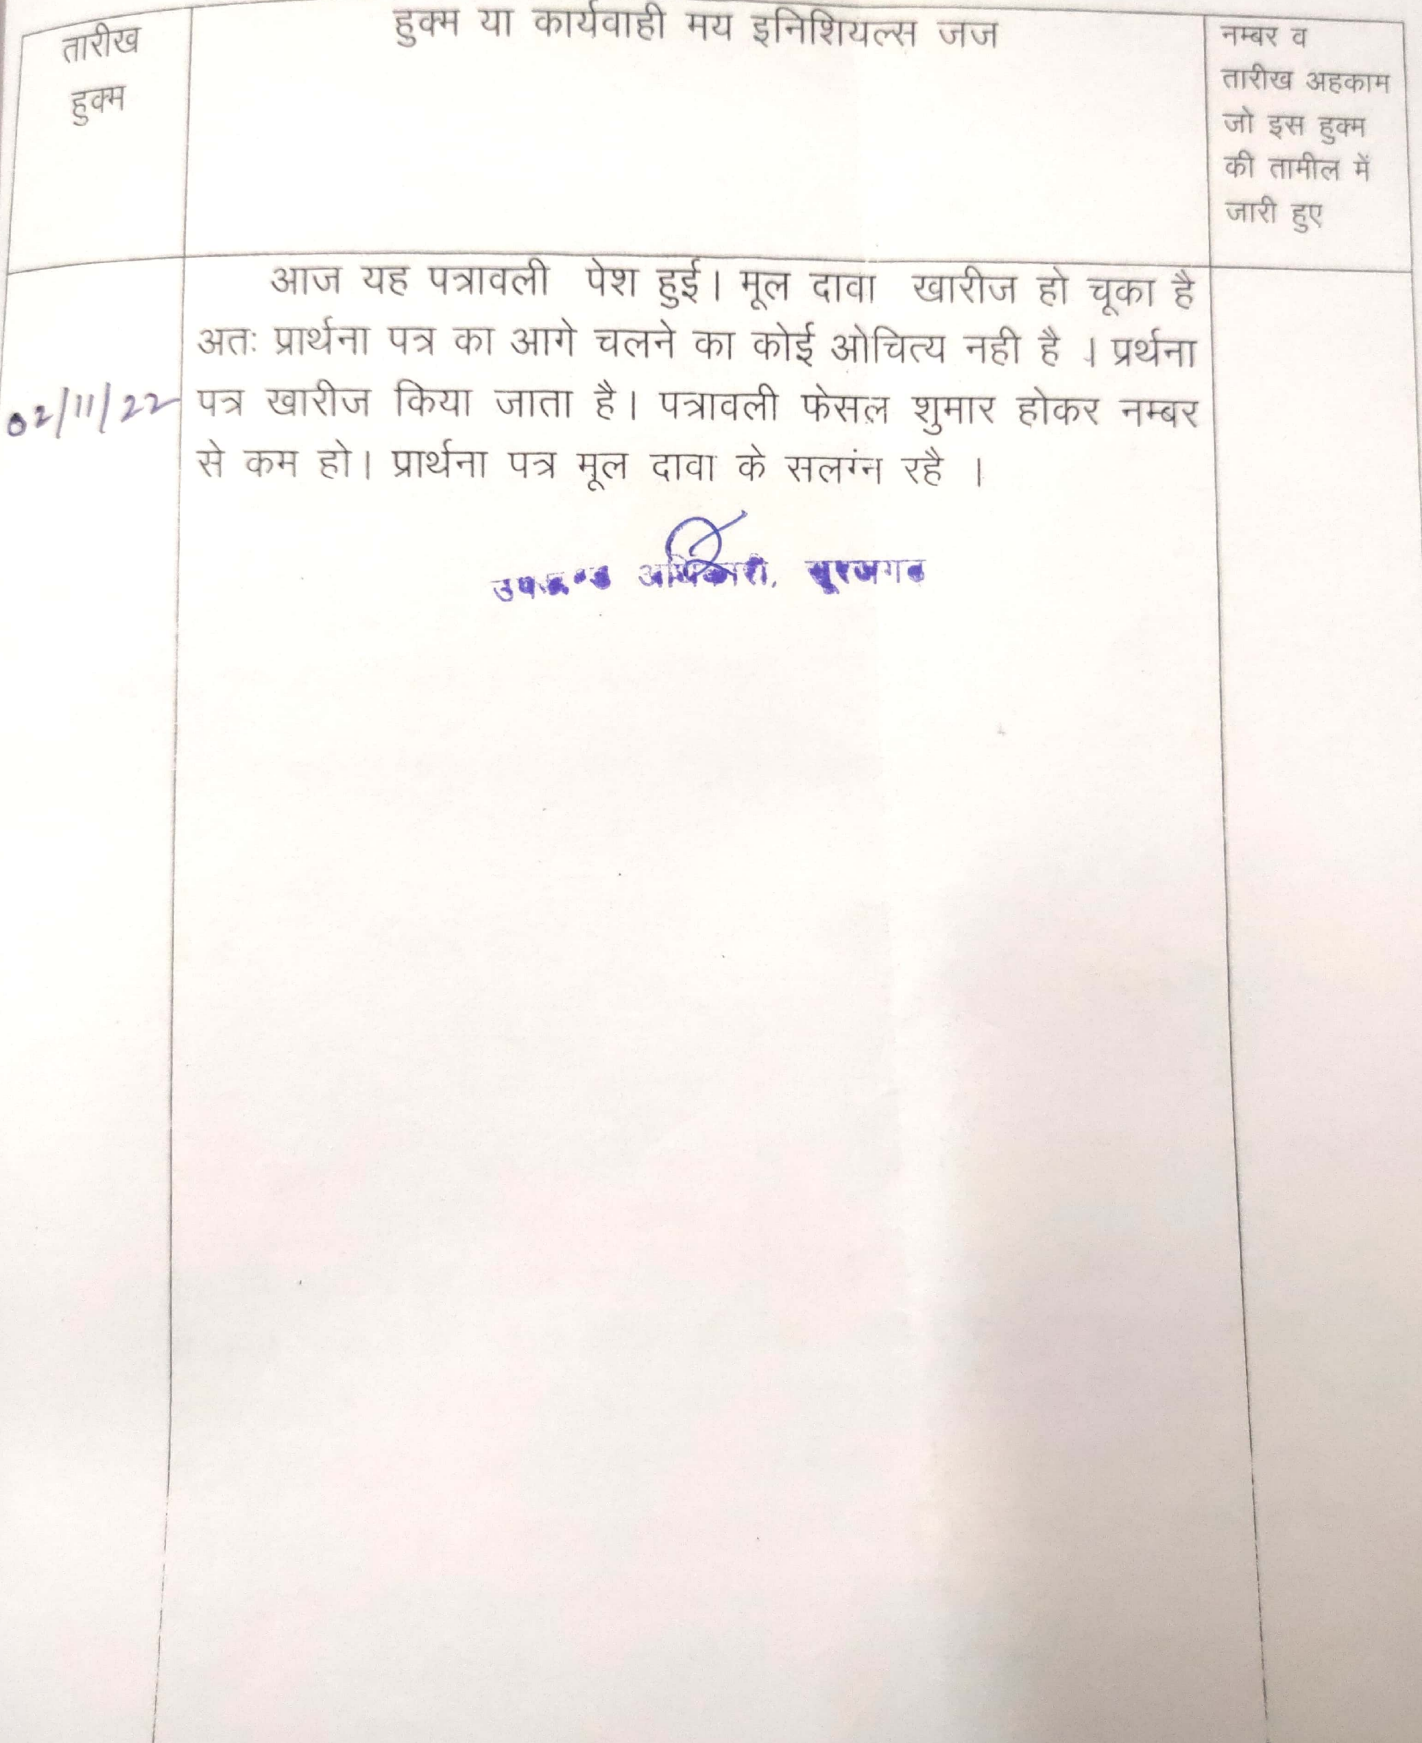 तारीख
हुक्म
हुक्म या कार्यवाही मय इनिशियल्स जज
नम्बर व
तारीख अहकाम
जो इस हुक्म
की तामील में
जारी हुए
02/11/22
आज यह पत्रावली पेश हुई। मूल दावा खारीज हो चूका है
अतः प्रार्थना पत्र का आगे चलने का कोई ओचित्य नही है । प्रर्थना
पत्र खारीज किया जाता है। पत्रावली फेसल शुमार होकर नम्बर
से कम हो। प्रार्थना पत्र मूल दावा के सलग्ंन रहै ।
उपखण्ड अधिकारी, सूरजगढ